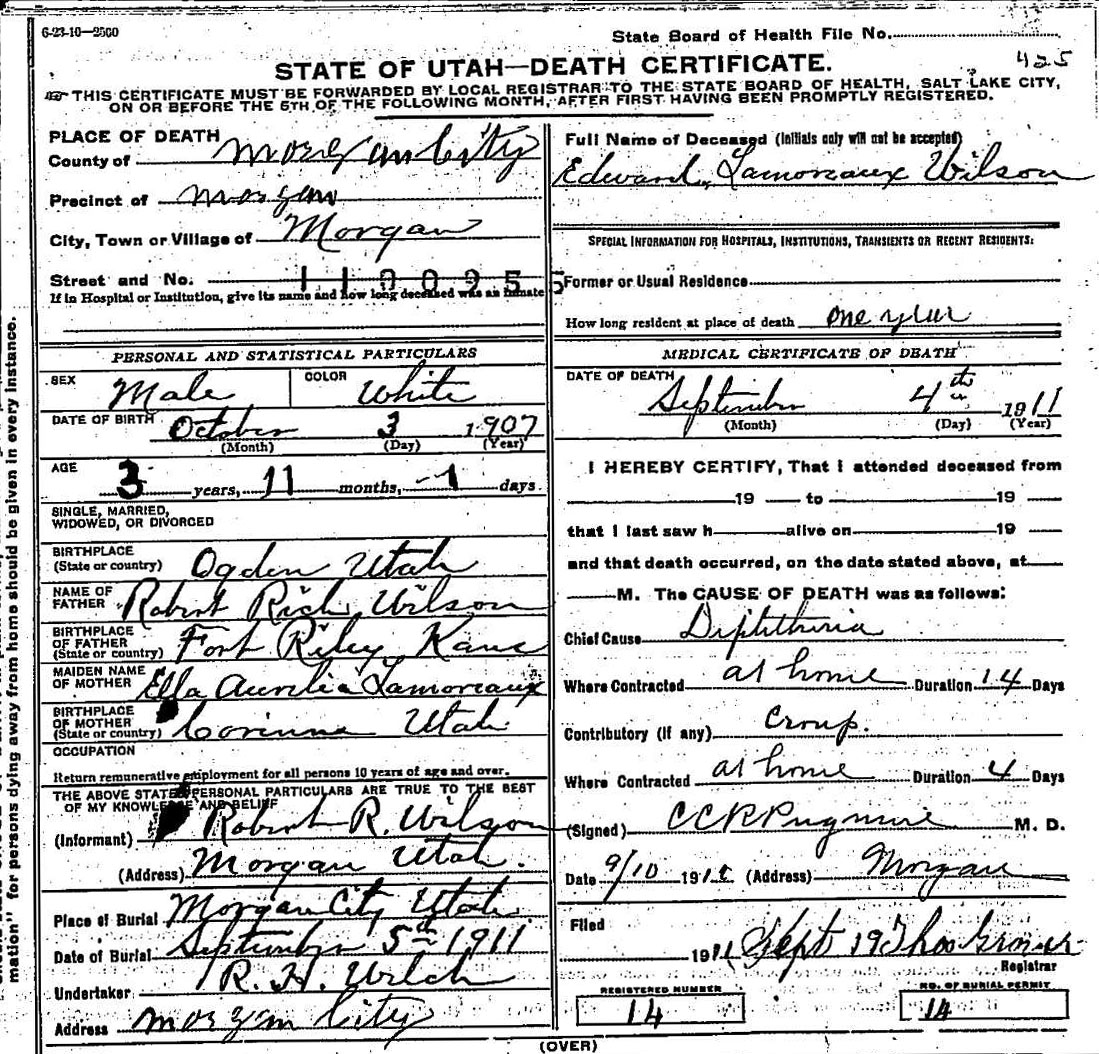 6-23-10—2500
State Board of Health File No.
425
STATE OF UTAH—DEATH CERTIFICATE.
THIS CERTIFICATE MUST BE FORWARDED BY LOCAL REGISTRAR TO THE STATE BOARD OF HEALTH, SALT LAKE CITY,
ON OR BEFORE THE 5TH OF THE FOLLOWING MONTH, AFTER FIRST HAVING BEEN PROMPTLY REGISTERED.
PLACE OF DEATH
County of Morgan City
Precinct of Morgan
City, Town or Village of Morgan
Street and No.
If in Hospital or Institution, give its name and how long deceased was an inmate
PERSONAL AND STATISTICAL PARTICULARS
SEX Male COLOR White
DATE OF BIRTH October 3 1907
(Month) (Day) (Year)
AGE
3 years, 11 months, 1 days.
SINGLE, MARRIED,
WIDOWED, OR DIVORCED
BIRTHPLACE
(State or country) Ogden Utah
NAME OF
FATHER Robert Rich Wilson
BIRTHPLACE
OF FATHER
(State or country) Fort Riley Kans
MAIDEN NAME
OF MOTHER Ella Aurelia Lamoreaux
BIRTHPLACE
OF MOTHER
(State or country) Corinne Utah
OCCUPATION
Return remunerative employment for all persons 10 years of age and over.
THE ABOVE STATED PERSONAL PARTICULARS ARE TRUE TO THE BEST
OF MY KNOWLEDGE AND BELIEF
(Informant) Robert R. Wilson
(Address) Morgan Utah.
Place of Burial Morgan City Utah
Date of Burial September 5th 1911
Undertaker R. H. Welch
Address Morgan City
Full Name of Deceased (Initials only will not be accepted)
Edward Lamoreaux Wilson
SPECIAL INFORMATION FOR HOSPITALS, INSTITUTIONS, TRANSIENTS OR RECENT RESIDENTS:
Former or Usual Residence
How long resident at place of death one year
MEDICAL CERTIFICATE OF DEATH
DATE OF DEATH
September 4th 1911
(Month) (Day) (Year)
I HEREBY CERTIFY, That I attended deceased from
19 to 19
that I last saw h alive on 19
and that death occurred, on the date stated above, at
M. The CAUSE OF DEATH was as follows:
Chief Cause Diphtheria
Where Contracted at home Duration 14 Days
Contributory (if any) Croup.
Where Contracted at home Duration 4 Days
(Signed) M. D.
Date 9/10 1911 (Address) Morgan
Filed
1911 Sept 19 Thos Grover
Registrar
REGISTERED NUMBER
14
NO. OF BURIAL PERMIT
14
(OVER)
mation" for persons dying away from home should be given in every instance.